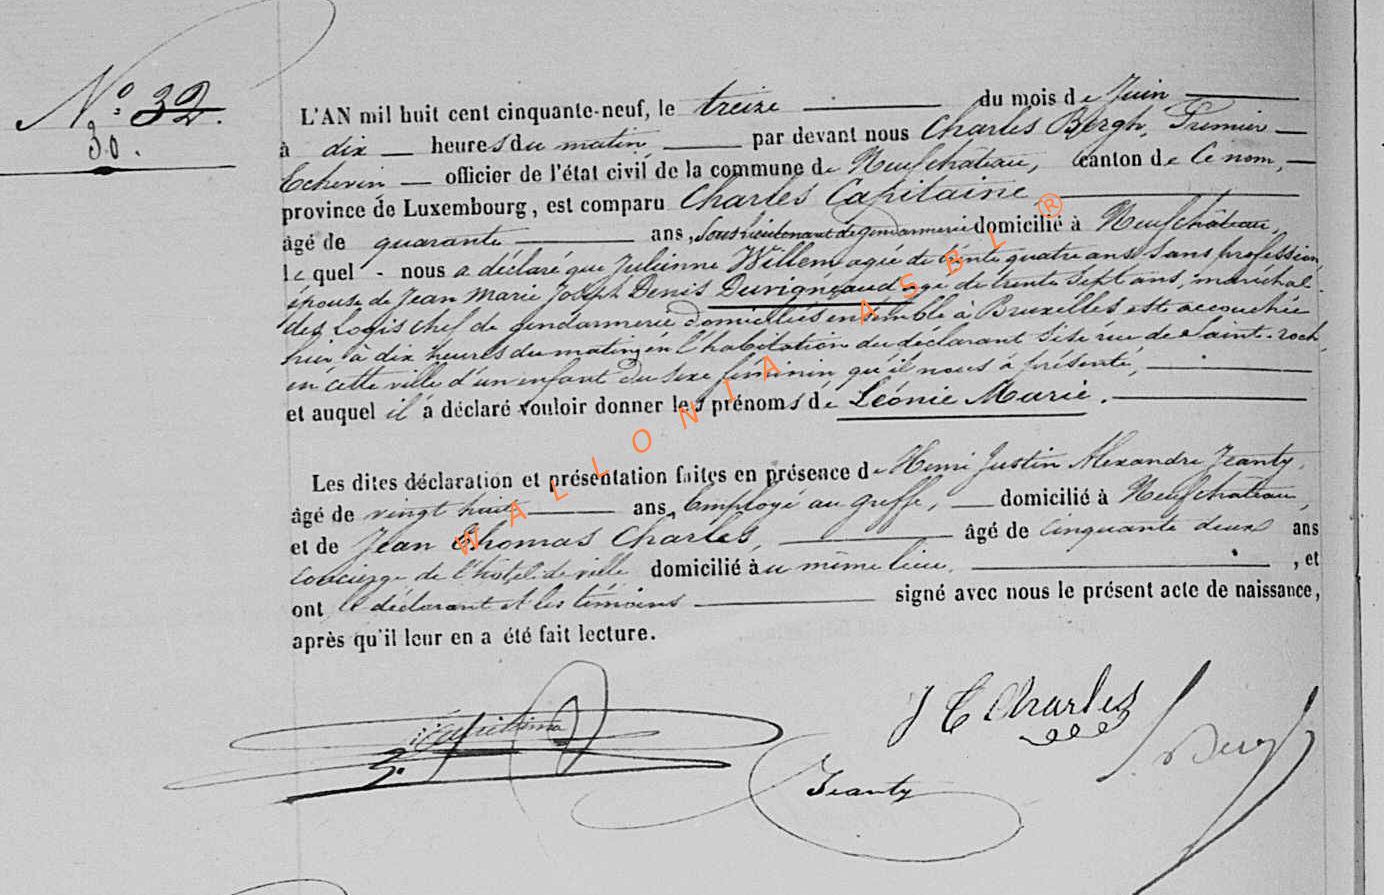 N° 32.
30.
L'AN mil huit cent cinquante-neuf, le treize du mois de Juin
à dix heures du matin, par devant nous Charles Bergh, Premier
Echevin, officier de l'état civil de la commune de Neufchâteau, canton de ce nom,
province de Luxembourg, est comparu Charles Capitaine
âgé de quarante ans, Sous lieutenant de gendarmerie domicilié à Neufchâteau,
lequel nous a déclaré que Julienne Willem agée de trente quatre ans, Sans profession
épouse de Jean Marie Joseph Denis Duvigneaud agé de trente Sept ans, maréchal
des Logis chef de gendarmerie domiciliés ensemble à Bruxelles est accouchée
hier à dix heures du matin, en l'habitation du déclarant Sise rue de Sainte-roch
en cette ville d'un enfant du sexe féminin, qu'il nous à présenté,
et auquel il a déclaré vouloir donner les prénoms de Léonie Marie.
Les dites déclaration et présentation faites en présence de Henri Justin Alexandre Jeanty,
âgé de vingt huit ans, Employé au greffe, domicilié à Neufchateau,
et de Jean Thomas Charles, âgé de cinquante deux ans
concierge de l'hotel de ville domicilié au même lieu, , et
ont le déclarant et les témoins signé avec nous le présent acte de naissance,
après qu'il leur en a été fait lecture.
Capitaine
J T Charles
Jeanty
Bergh
WALLONIA ASBL ®